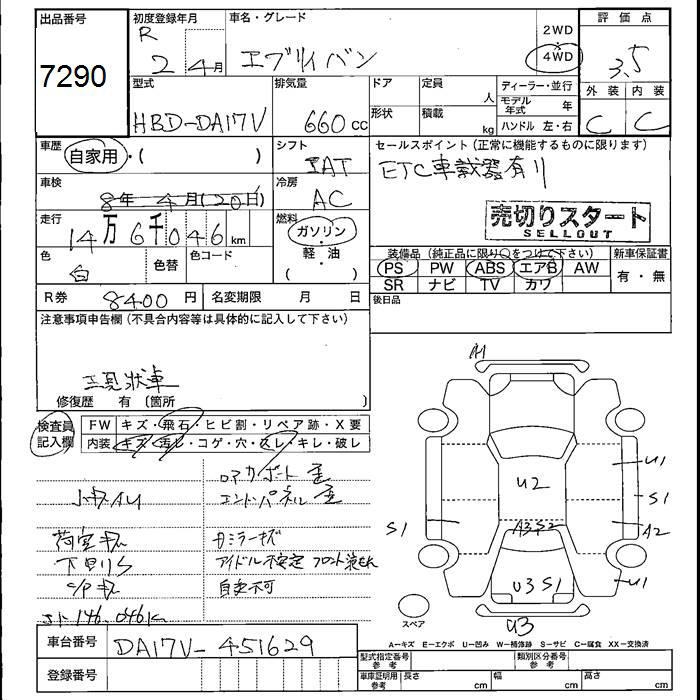 出品番号 初度登録年月 車名・グレード 評価点
7290 R 2年 4月 エブリイバン 2WD 4WD 3.5
型式 排気量 ドア 定員 人 ディーラー・並行 外装 内装
HBD-DA17V 660cc 形状 積載 kg モデル年式 年 ハンドル 左・右 C C
車歴 自家用・( ) シフト セールスポイント(正常に機能するものに限ります)
IAT ETC車載器有り
車検 8年 4月(20日) 冷房 AC
売切りスタート
SELLOUT
走行 14万6千046km 燃料 ガソリン・軽・油( )
装備品(純正品に限り○をつけて下さい) 新車保証書
色 白 色替 色コード PS PW ABS エアB AW 有・無
SR ナビ TV カワ
R券 8400円 名変期限 月 日 後日品
注意事項申告欄(不具合内容等は具体的に記入して下さい)
工具状車
修復歴 有 〔箇所 〕
検査員記入欄 FW キズ・飛石・ヒビ割・リペア跡・X要
内装 キズ・汚し・コゲ・穴・スレ・キレ・破し
ロアサポート歪
小キズAU エンドパネル歪
荷室キズ カミラーキズ
下回りS アイドル不安定
C/Pキズ 自走不可
146,046K
A1
U1
U2
S1
S1
A3 S2
A2
U1
U3 S1
U3
スペア
A-キズ E-エクボ U-凹み W-補修跡 S-サビ C-腐食 XX-交換済
車台番号 DA17V-451629
型式指定番号 参考 類別区分番号 参考
登録番号 車庫証明用 参考 長さ cm 幅 cm 高さ cm